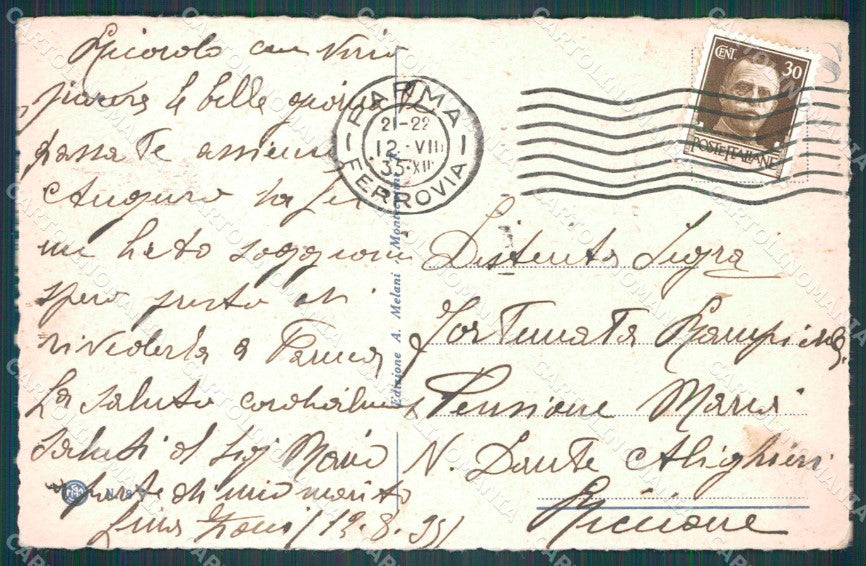 Ricordo con vivo
piacere le belle giornate
passate assieme
Auguro a Lei
un lieto soggiorno
spero presto di
rivederla a Parma
La saluto cordialmente
saluti al Sig Mario
parte di mio marito
Lina (12.8.35)
PARMA
21-22
12 · VIII
35 · XIII
FERROVIA
CENT. 30
POSTE ITALIANE
Edizione A. Melani
Distinta Sigra
Fortunata
Pensione Maria
V. Dante Alighieri
Riccione
CARTOLINOMANIA